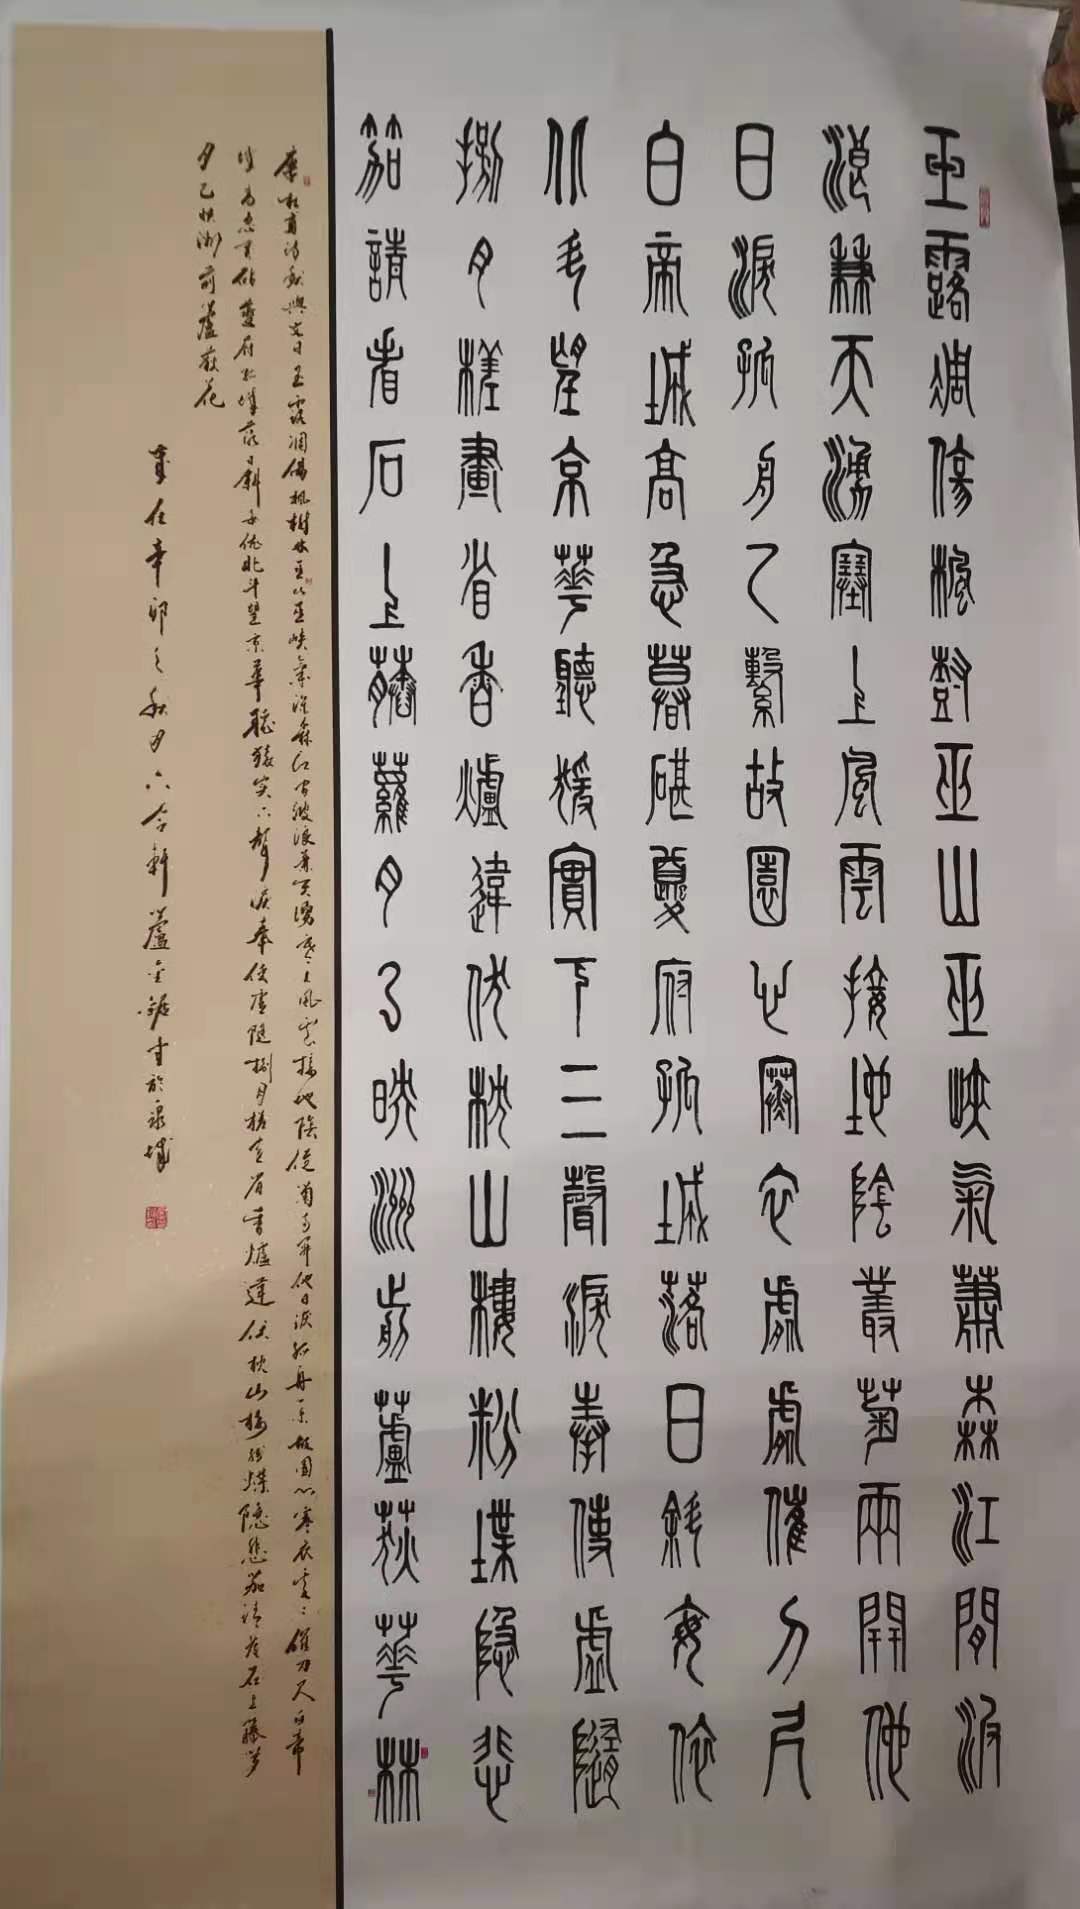 玉露凋傷楓樹巫山巫峽氣蕭森江間波
浪兼天湧塞上風雲接地陰叢菊兩開他
日淚孤舟一繫故園心寒衣處處催刀尺
白帝城高急暮碪夔府孤城落日斜每依
北斗望京華聽猨實下三聲淚奉使虛隨
捌月槎畫省香爐違伏枕山樓粉堞隱悲
笳請看石上藤蘿月已映洲前蘆荻華林
唐杜甫詩秋興曰玉露凋傷楓樹林巫山巫峽氣蕭森江間波浪兼天湧塞上風雲接地陰叢菊兩開他日淚孤舟一繫故園心寒衣處處催刀尺白帝
城高急暮砧夔府孤城落日斜每依北斗望京華聽猿實下三聲淚奉使虛隨捌月槎畫省香爐違伏枕山樓粉堞隱悲笳請看石上藤蘿
月已映洲前蘆荻花
歲在辛卯之秋月六合軒蘆金書於泉城